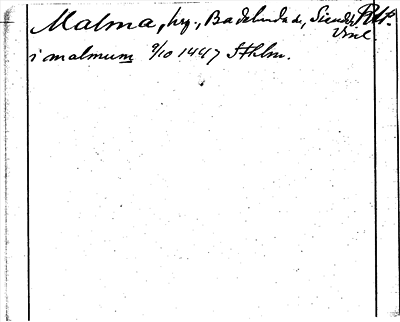 Malma, by, Badelunda, Siende RAp.
Vml.
i malmum 9/10 1447 Sthlm.